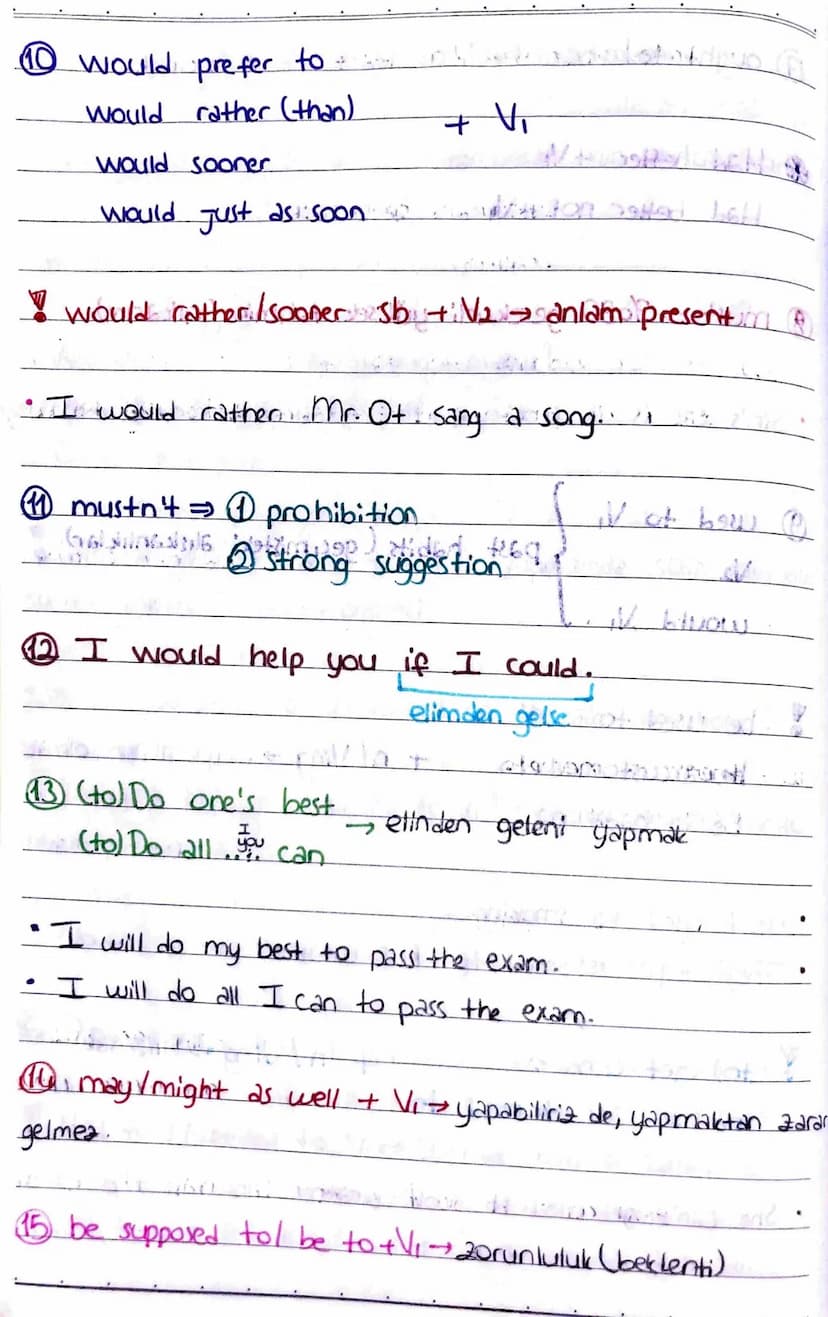 10 would prefer to
would rather (than) + V1
would sooner
would just as soon
! would rather/sooner sb + V2 → anlam present
• I would rather Mr. Ot. sang a song.
11 mustn't ⇒ 1 prohibition
2 strong suggestion
12 I would help you if I could.
elimden gelse
13 (to) Do one's best → elinden geleni yapmak
(to) Do all I you can
• I will do my best to pass the exam.
• I will do all I can to pass the exam.
14 may/might as well + V1 → yapabiliriz de, yapmaktan zarar
gelmez.
15 be supposed to/ be to + V1 → zorunluluk (beklenti)